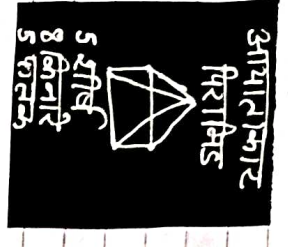 आयाताकार
पिरामिड
5 शीर्ष
8 किनारे
5 फलक